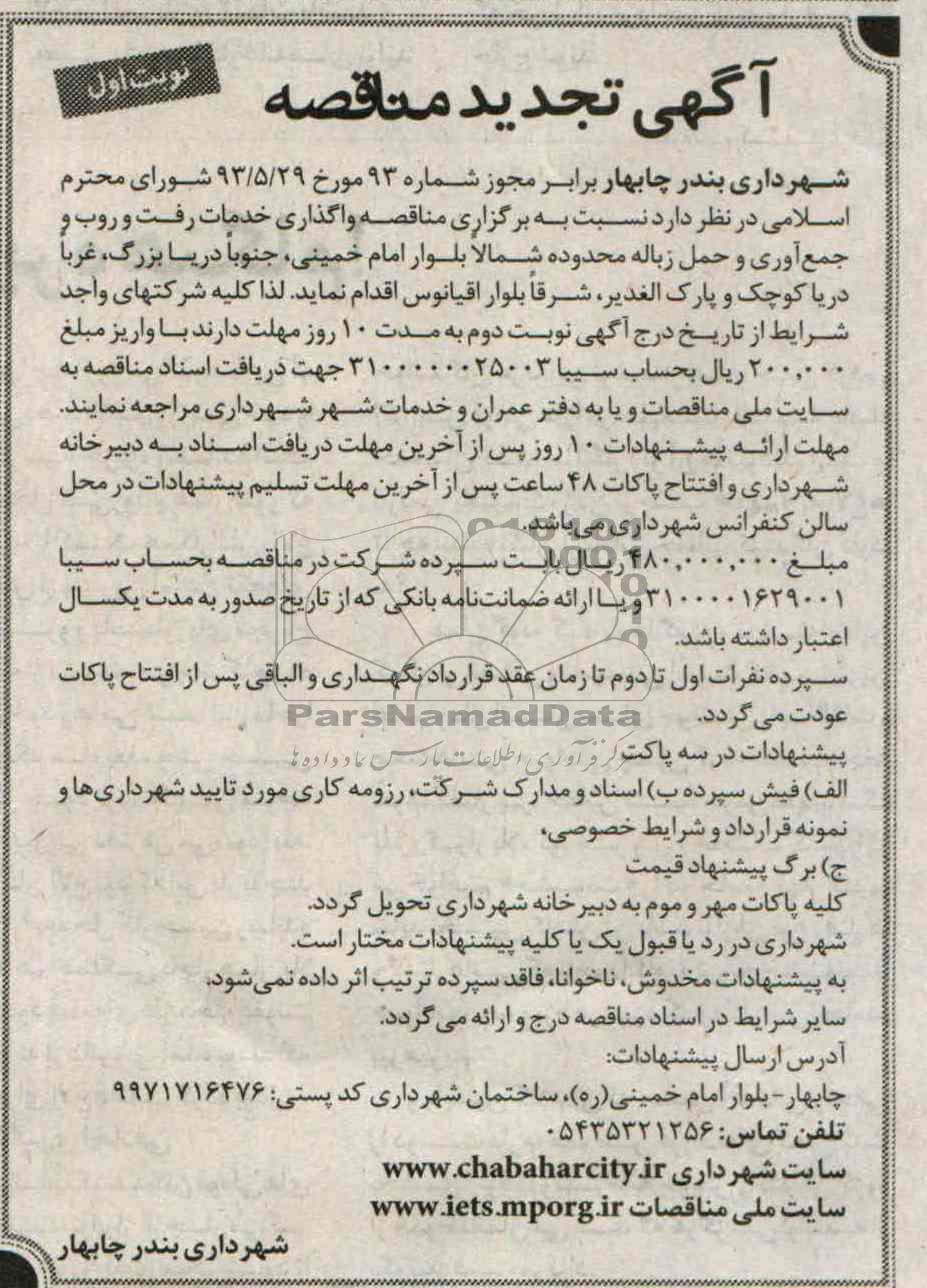 نوبت اول
آگهی تجدید مناقصه
شهرداری بندر چابهار برابر مجوز شماره ۹۳ مورخ ۹۳/۵/۲۹ شورای محترم
اسلامی در نظر دارد نسبت به برگزاری مناقصه واگذاری خدمات رفت و روب و
جمع‌آوری و حمل زباله محدوده شمالاً بلوار امام خمینی، جنوباً دریا بزرگ، غرباً
دریا کوچک و پارک الغدیر، شرقاً بلوار اقیانوس اقدام نماید. لذا کلیه شرکتهای واجد
شرایط از تاریخ درج آگهی نوبت دوم به مدت ۱۰ روز مهلت دارند با واریز مبلغ
۲۰۰,۰۰۰ ریال بحساب سیبا ۳۱۰۰۰۰۰۰۲۵۰۰۳ جهت دریافت اسناد مناقصه به
سایت ملی مناقصات و یا به دفتر عمران و خدمات شهر شهرداری مراجعه نمایند.
مهلت ارائه پیشنهادات ۱۰ روز پس از آخرین مهلت دریافت اسناد به دبیرخانه
شهرداری و افتتاح پاکات ۴۸ ساعت پس از آخرین مهلت تسلیم پیشنهادات در محل
سالن کنفرانس شهرداری می‌باشد.
مبلغ ۴۸۰,۰۰۰,۰۰۰ ریال بابت سپرده شرکت در مناقصه بحساب سیبا
۳۱۰۰۰۰۱۶۲۹۰۰۱ و یا ارائه ضمانت‌نامه بانکی که از تاریخ صدور به مدت یکسال
اعتبار داشته باشد.
سپرده نفرات اول تا دوم تا زمان عقد قرارداد نگهداری و الباقی پس از افتتاح پاکات
عودت می‌گردد.
ParsNamadData
پیشنهادات در سه پاکت
مرکز فرآوری اطلاعات پارس نماد داده ها
الف) فیش سپرده ب) اسناد و مدارک شرکت، رزومه کاری مورد تایید شهرداری‌ها و
نمونه قرارداد و شرایط خصوصی،
ج) برگ پیشنهاد قیمت
کلیه پاکات مهر و موم به دبیرخانه شهرداری تحویل گردد.
شهرداری در رد یا قبول یک یا کلیه پیشنهادات مختار است.
به پیشنهادات مخدوش، ناخوانا، فاقد سپرده ترتیب اثر داده نمی‌شود.
سایر شرایط در اسناد مناقصه درج و ارائه می‌گردد.
آدرس ارسال پیشنهادات:
چابهار- بلوار امام خمینی(ره)، ساختمان شهرداری کد پستی: ۹۹۷۱۷۱۶۴۷۶
تلفن تماس: ۰۵۴۳۵۳۲۱۲۵۶
سایت شهرداری www.chabaharcity.ir
سایت ملی مناقصات www.iets.mporg.ir
شهرداری بندر چابهار